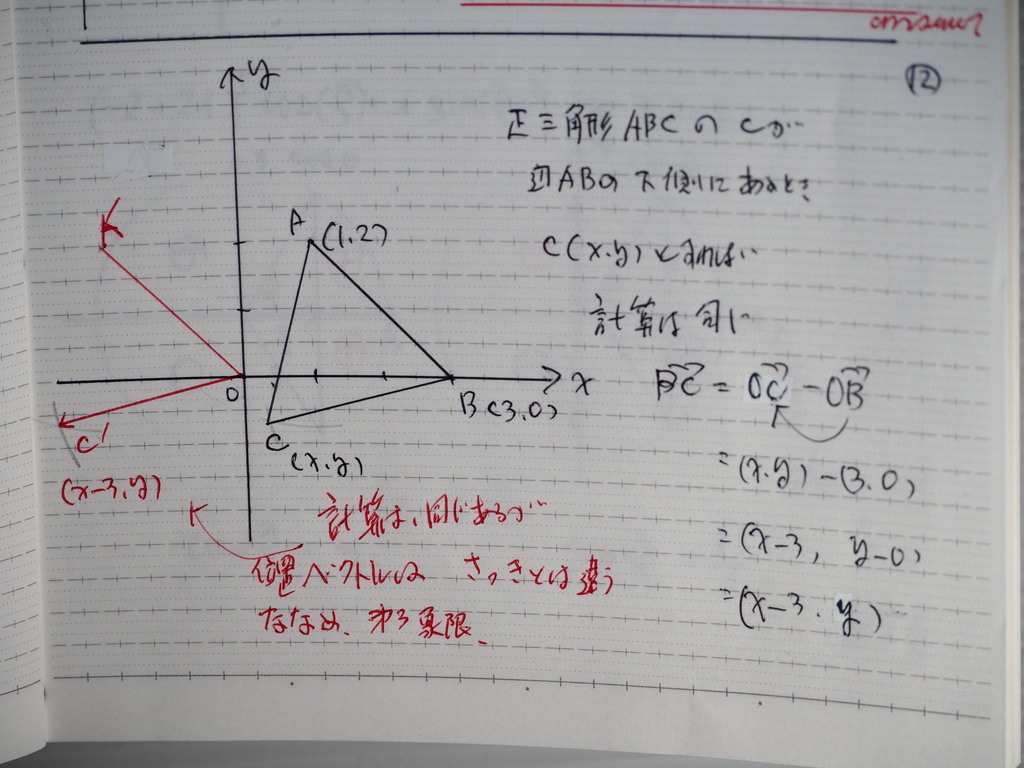 answer
12
y
正三角形ABCのCが
辺ABの下側にあるとき
A (1,2)
C(x.y)とすれば
計算は同じ
O
x
B(3,0)
C
(x,y)
C'
(x-3,y)
BC = OC - OB
= (x.y) - (3.0)
= (x-3, y-0)
= (x-3. y)
計算は、同じであるが
位置ベクトルは さっきとは違う
ななめ、第3象限、